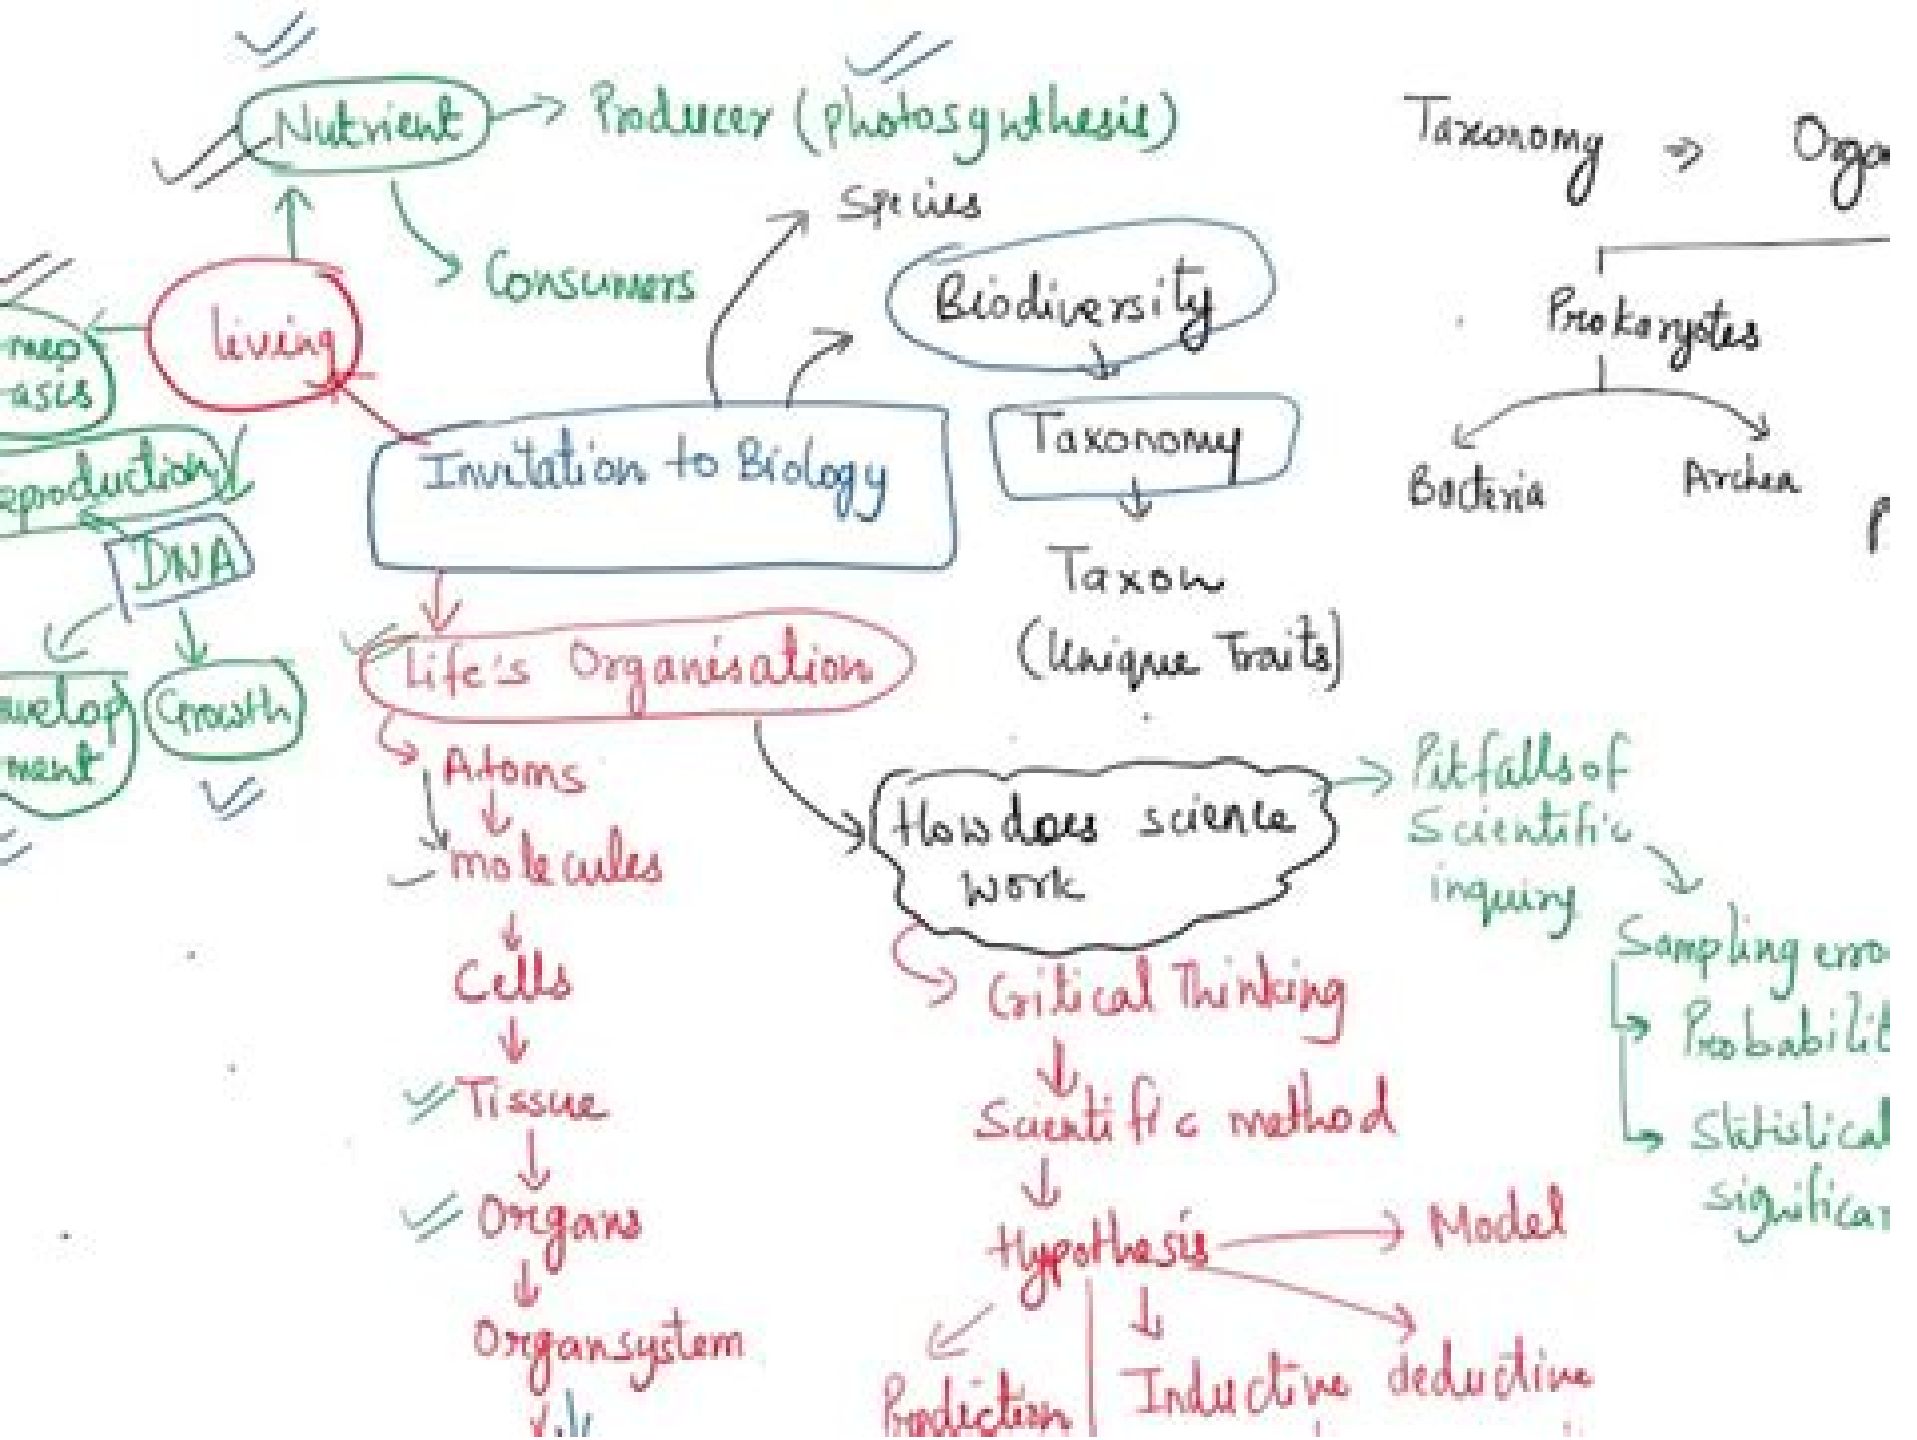 Nutrient
Producer (photosynthesis)
Consumers
Species
living
Biodiversity
Taxonomy
Taxon
(Unique Traits)
Invitation to Biology
eproduction
DNA
Growth
velop
ment
Life's Organisation
Atoms
molecules
Cells
Tissue
Organs
Organsystem
How does science
work
Critical Thinking
Scientific method
Hypothesis
Model
Prediction
Inductive
deductive
Pitfalls of
Scientific
inquiry
Sampling erro
Probabilit
Statistical
significan
Taxonomy ⇒ Orga
Prokaryotes
Bacteria
Archea
P